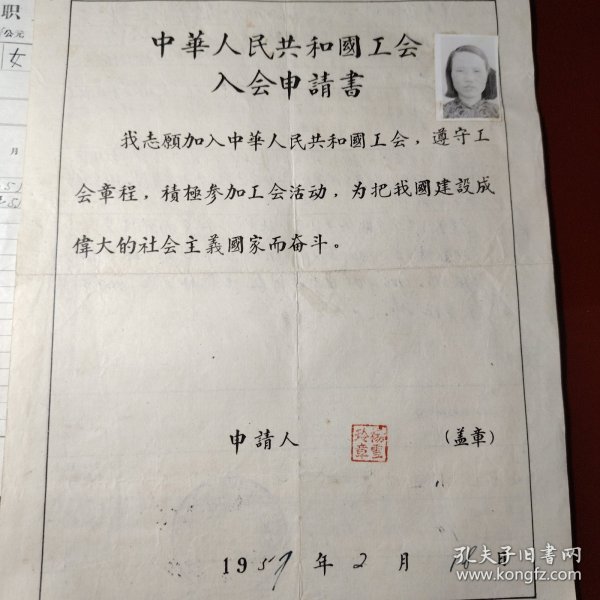 职
公元
女
月
中華人民共和國工会
入会申請書
我志願加入中華人民共和國工会，遵守工
会章程，積極参加工会活动，为把我國建設成
偉大的社会主義國家而奋斗。
申請人
（盖章）
1957年2月 日
孔夫子旧书网
www.kongfz.com